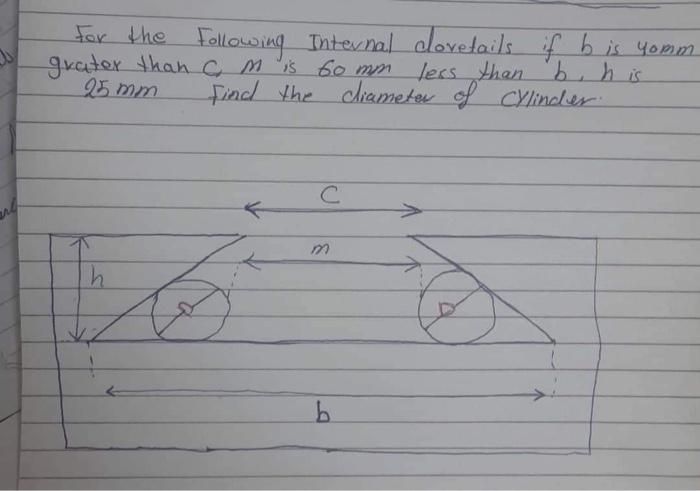 For the Following Internal dovetails if b is 40mm
grater than C, M is 60 mm less than b, h is
25 mm Find the diameter of cylinder.
C
m
h
D
D
b